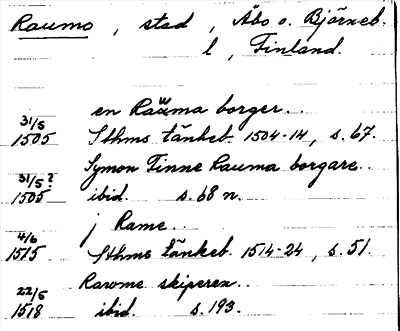 Raumo, stad, Åbo o. Björneb.
l, Finland.
en Rawma borger..
31/5 1505 Sthms tänkeb. 1504-14, s. 67.
Symon Finne Rauma borgare..
31/5? 1505 ibid. s. 68 n.
j Rame..
4/6 1515 Sthms tänkeb. 1514-24, s. 51.
Rawme skiperen..
22/5 1518 ibid. s. 193.